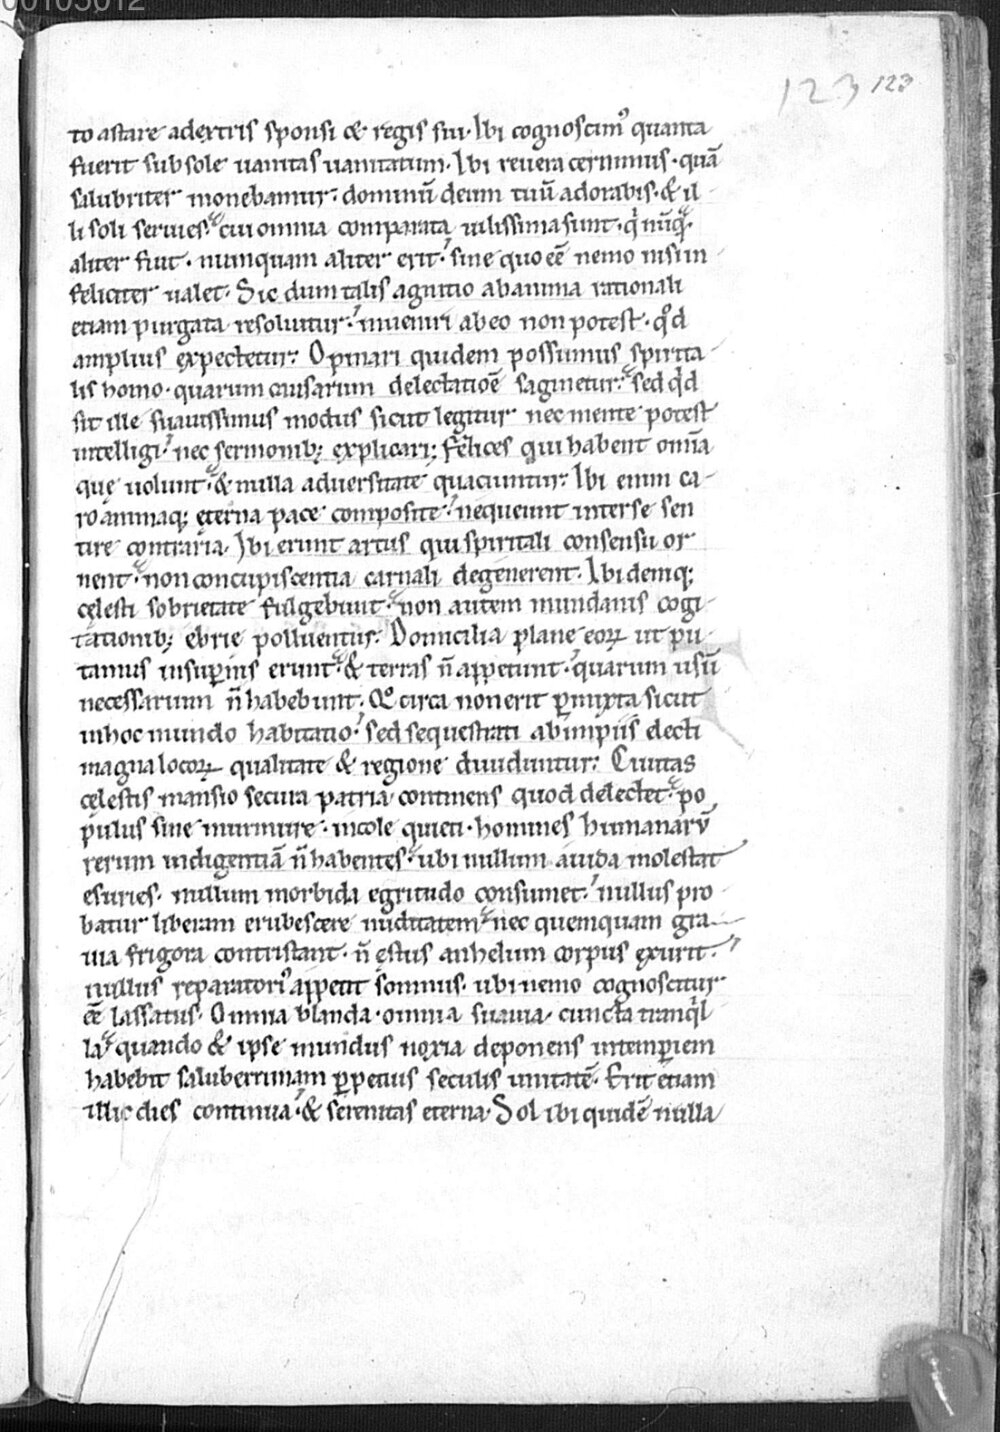 00103012
123 123
to astare adextris sponsi & regis sui. Ibi cognoscim᷒ quanta
fuerit sub sole uanitas uanitatum. Ibi reuera cernimus. quā
salubriter monebamur. dominū deum tuū adorabis. & il
li soli seruies. cui omnia comparata uilissima sunt. q̇ nūq̄
aliter fuit. numquam aliter erit. sine quo eē nemo nisi in
feliciter ualet. Sic dum talis agnitio ab anima rationali
etiam purgata resoluitur. inueniri ab eo non potest. qd̄
amplius expectetur. Opinari quidem possumus spirita
lis homo. quarum causarum delectatiōe saginetur. sed qd̄
sit ille suauissimus modus sicut legitur nec mente potest
intelligi. nec sermonib; explicari; felices qui habent omīa
quę uolunt. & nulla aduersitate quatiuntur. Ibi enim ca
ro animaq; ęterna pace composite. nequeunt inter se sen
tire contraria. Ibi erunt artus qui spiritali consensu or
nent. non concupiscentia carnali degenerent. Ibidemq;
cęlesti sobrietate fulgebunt. non autem mundanis cogi
tationib; ebrie polluentur. Domicilia plane eoꝝ ut pu
tamus in suꝑnis erunt. & terras n̄ appetunt. quarum usū
necessarium n̄ habebunt. Qͦ circa non erit ꝑmixta sicut
in hoc mundo habitatio. sed sequestrati ab impiis electi
magna locoꝝ qualitate & regione diuiduntur. Ciuitas
cęlestis mansio secura patria continens quod delectet. po
pulus sine murmure. incole quieti. homines humanarū
rerum indigentiā n̄ habentes. ubi nullum auida molestat
esuries. nullum morbida egritudo consumet. nullus pro
batur liberam erubescere nuditatem. nec quemquam gra
uia frigora contristant. n̄ ęstus anhelum corpus exurit.
nullus reparatori᷒ appetit somnus. ubi nemo cognoscitur
eē lassatus. Omnia blanda. omnia suauia. cuncta tranq̇l
la. quando & ipse mundus noxia deponens intemꝑiem
habebit saluberrimam ꝑpetuis seculis unitatē. Erit etiam
illic dies continua. & serenitas eterna. Sol ibi quidē nulla